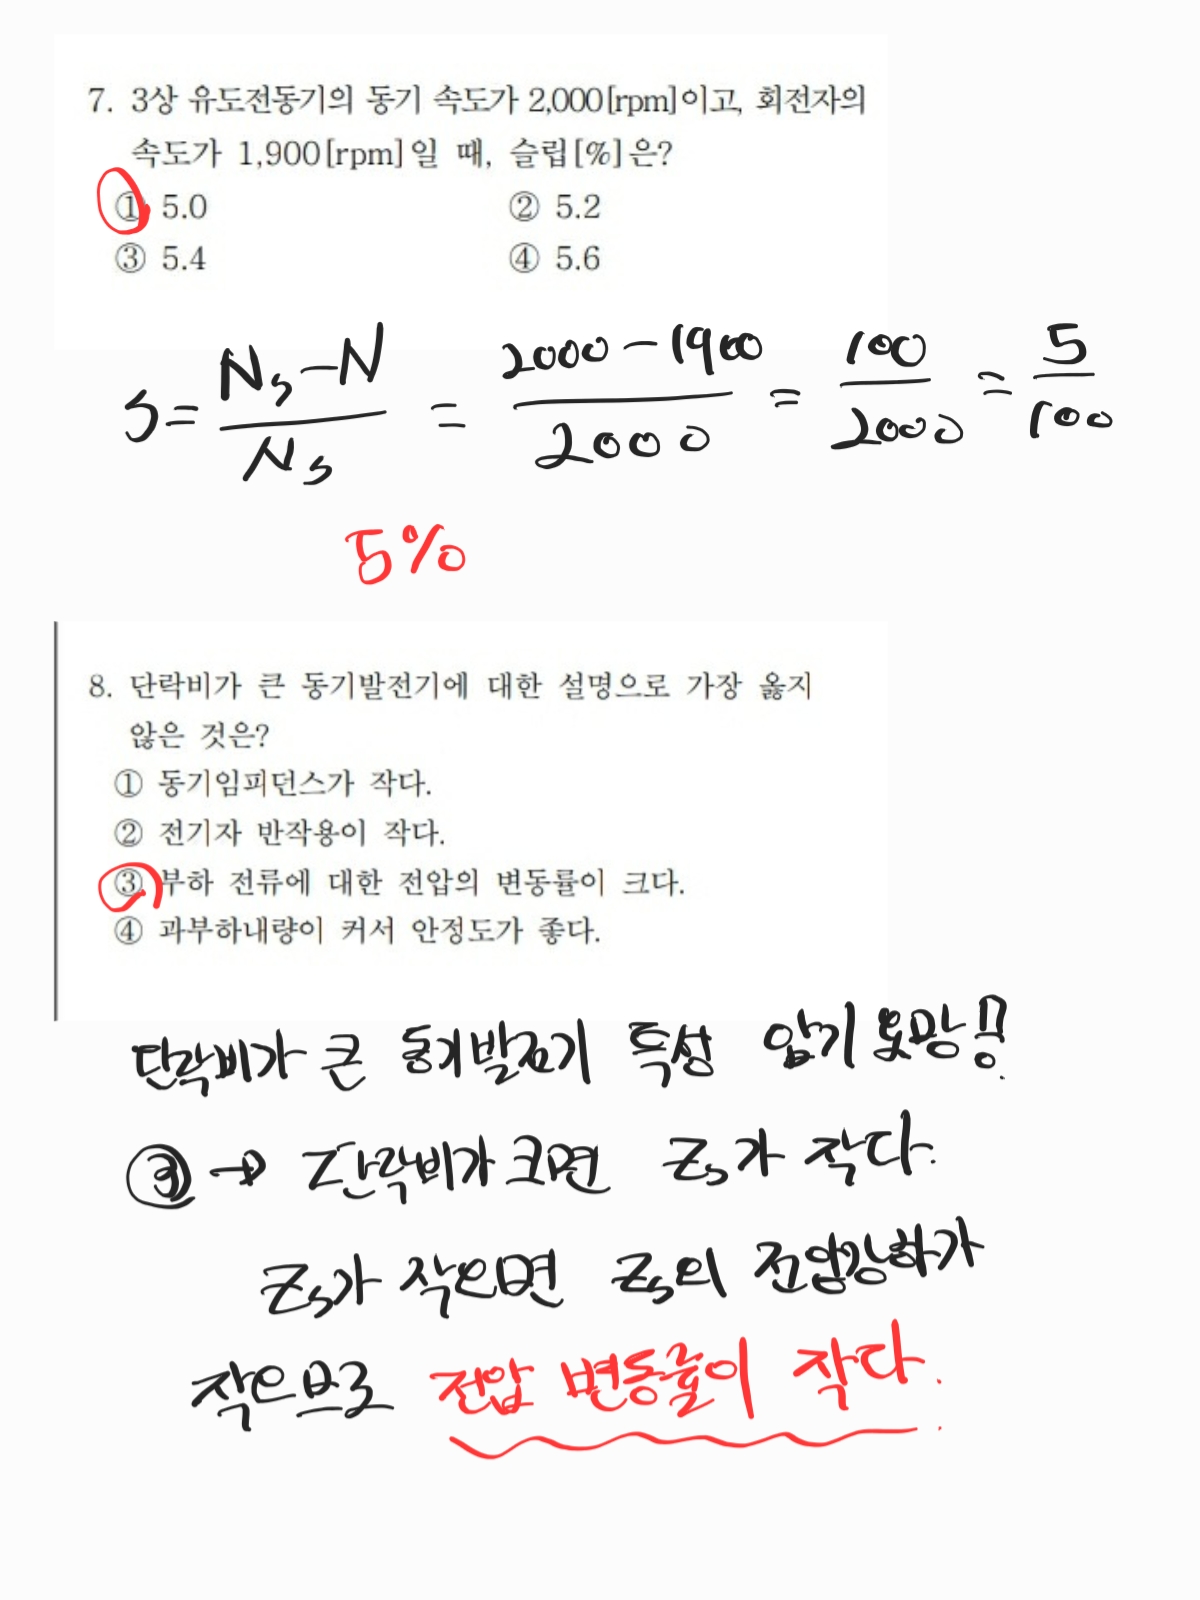 7. 3상 유도전동기의 동기 속도가 2,000[rpm]이고, 회전자의
속도가 1,900[rpm]일 때, 슬립[%]은?
① 5.0 ② 5.2
③ 5.4 ④ 5.6
s = (Ns-N)/Ns = (2000-1900)/2000 = 100/2000 = 5/100
5%
8. 단락비가 큰 동기발전기에 대한 설명으로 가장 옳지
않은 것은?
① 동기임피던스가 작다.
② 전기자 반작용이 작다.
③ 부하 전류에 대한 전압의 변동률이 크다.
④ 과부하내량이 커서 안정도가 좋다.
단락비가 큰 동기발전기 특성 암기 요망!!
③ → 단락비가 크면 Zs가 작다.
Zs가 작으면 Zs의 전압강하가
작으므로 전압 변동률이 작다.